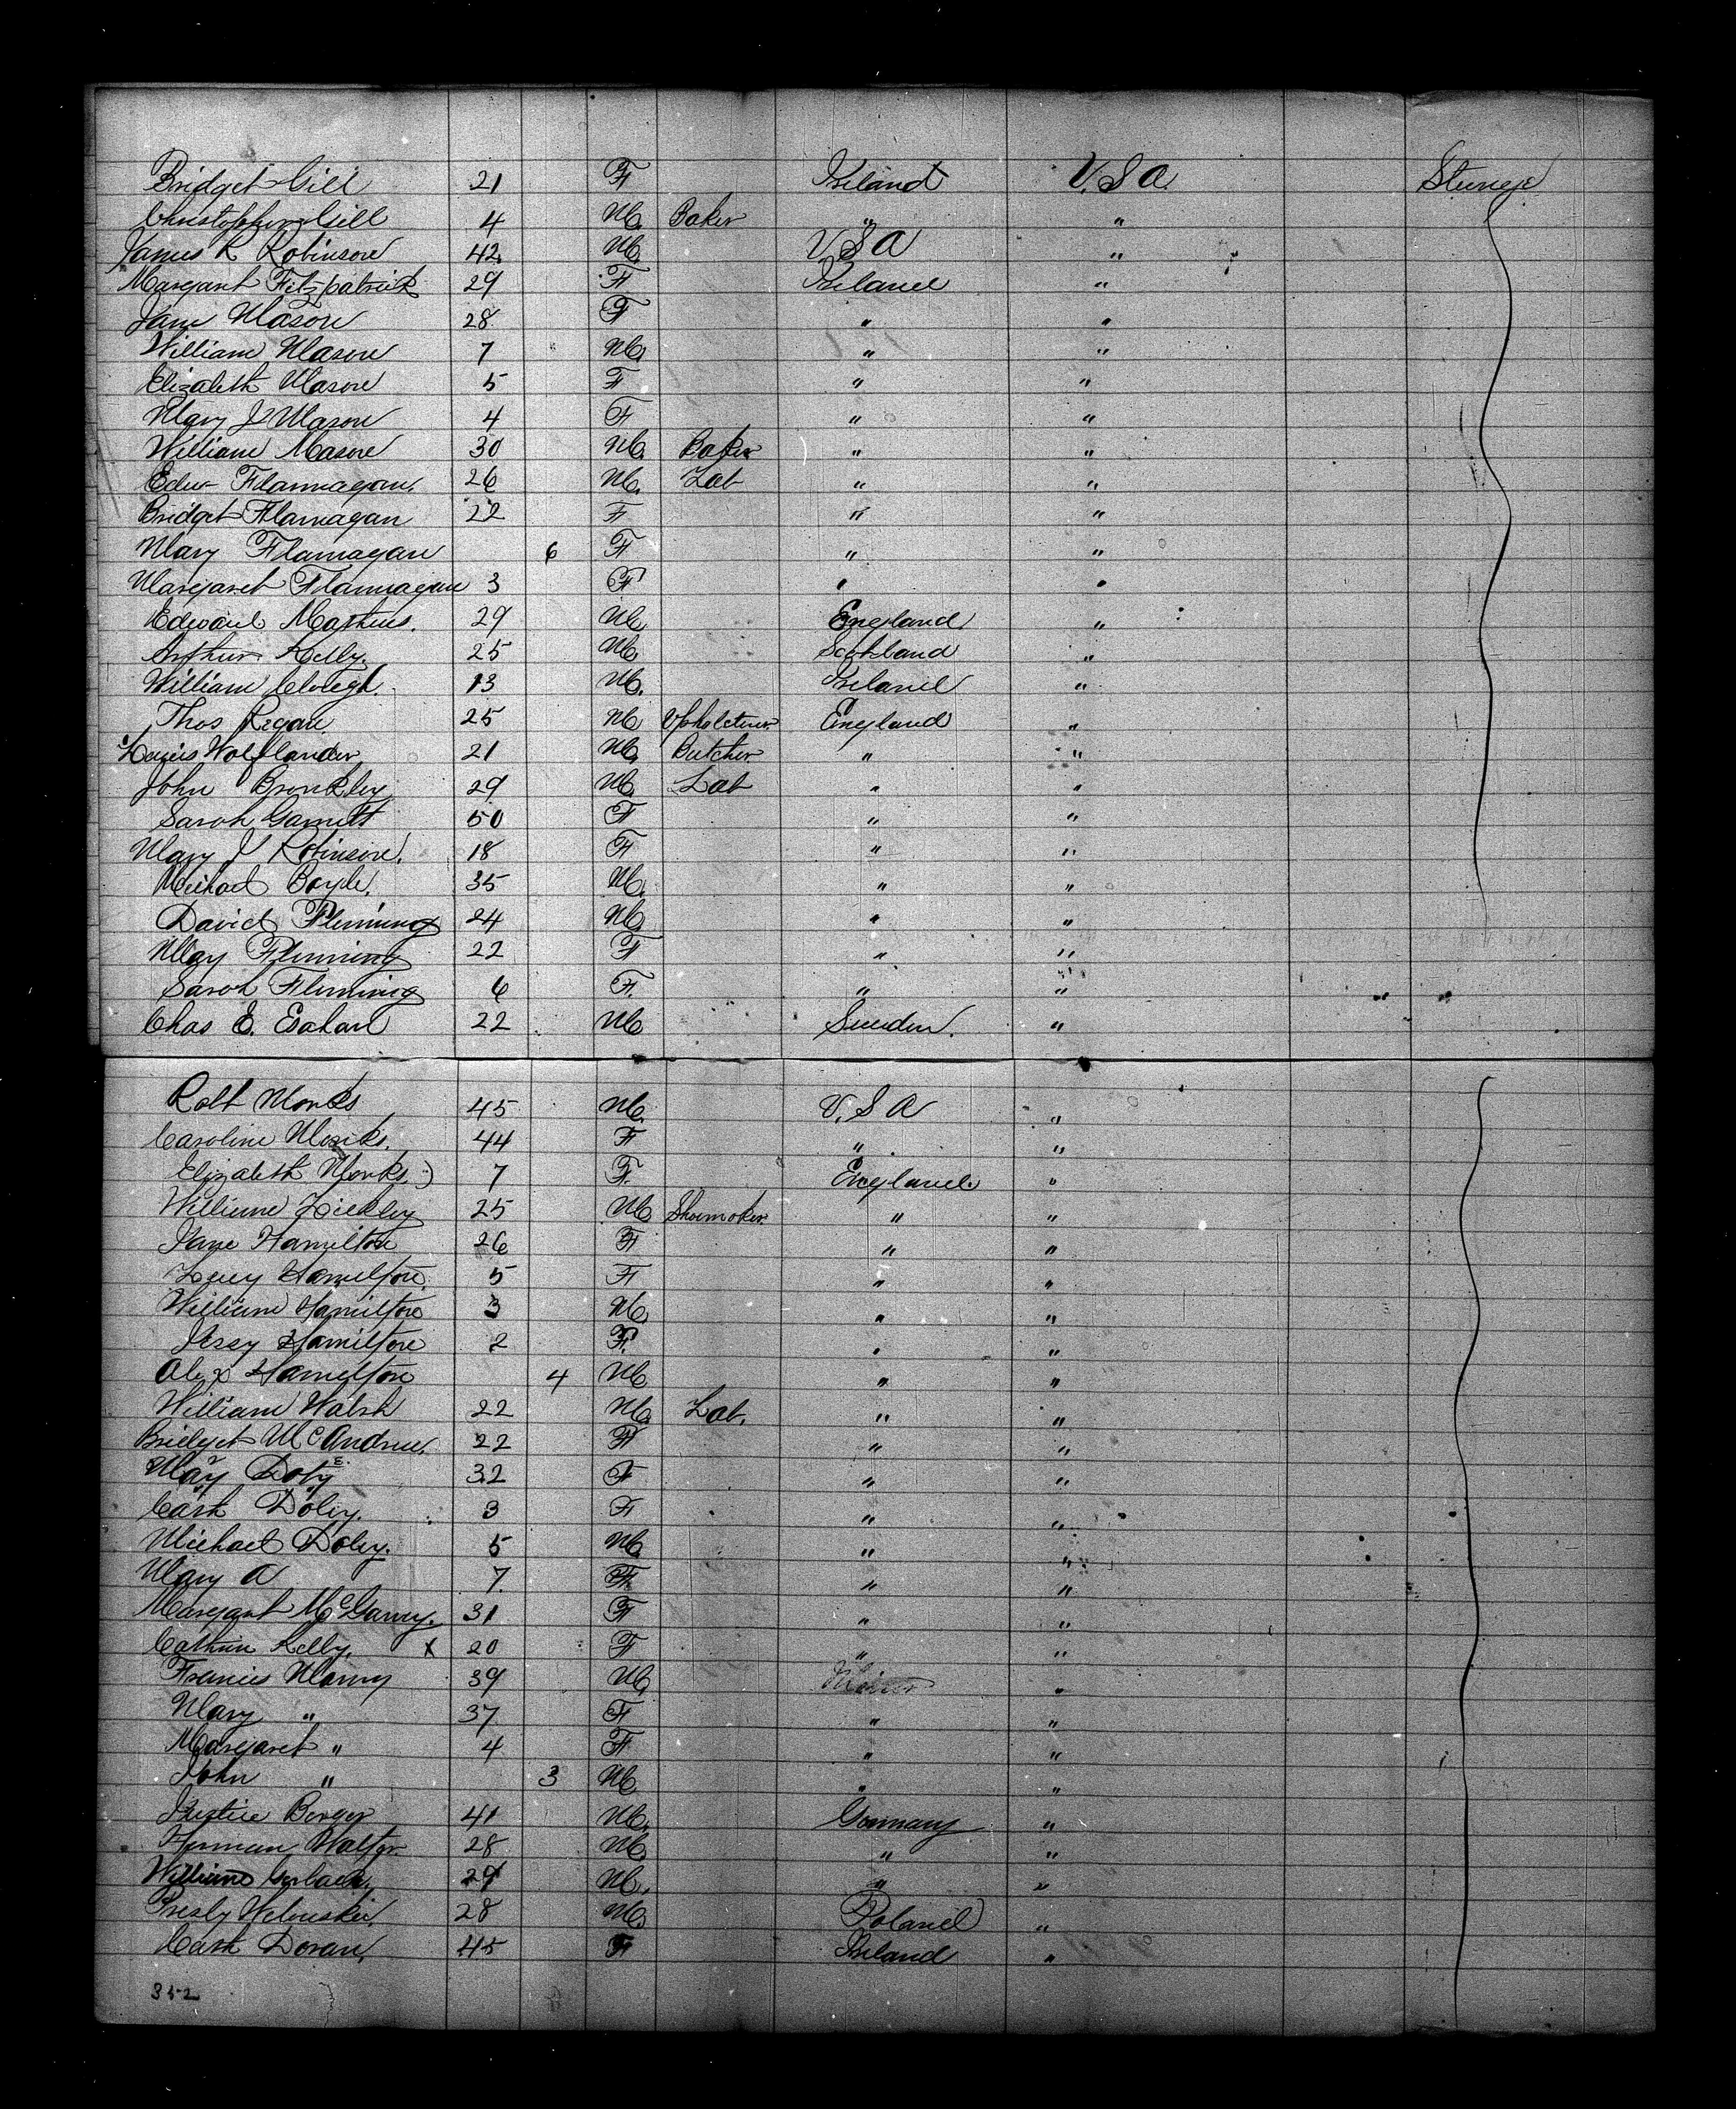 Bridget Gill 21 F Ireland U.S.A. Steerage
Christopher Gill 4 M. Baker " "
James R Robinson 42 M. U S A "
Margaret Fitzpatrick 29 F Ireland "
Jane Mason 28 F " "
William Mason 7 M. " "
Elizabeth Mason 5 F " "
Mary J Mason 4 F " "
William Mason 30 M. Baker " "
Edw Flannagan. 26 M. Lab " "
Bridget Flannagan 22 F " "
Mary Flannagan 6 F " "
Margaret Flannagan 3 F " "
Edward Mathews. 29 M. England. "
Arthur Kelly 25 M. Scotland "
William Clough. 13 M. Ireland "
Thos Regan 25 M. Upholsterer England "
Louis Wolflander 21 M. Butcher " "
John Bronkley 29 M. Lab " "
Sarah Garnett 50 F " "
Mary J Robinson. 18 F " "
Michael Boyle. 35 M. " "
David Fleming 24 M. " "
May Fleming 22 F " "
Sarah Fleming 6 F. " "
Chas E. 22 M. Sweden. "
Robt Monks 45 M. U.S A "
Caroline Monks. 44 F " "
Elizabeth Monks. 7 F. England. "
William 25 M. Shoemaker " "
Jane Hamilton 26 F " "
Lucy Hamilton. 5 F " "
William Hamilton 3 M. " "
Jessy Hamilton 2 F. " "
Alex Hamilton 4 M. " "
William Walsh 22 M. Lab. " "
Bridget McAndrew. 22 F " "
Mary Doty 32 F " "
Cath Doty. 3 F " "
Michael Doty. 5 M. " "
Mary A 7 F " "
Margaret McGarry. 31 F " "
Cathrin Kelly. X 20 F " "
Francis 39 M. "
Mary " 37 F " "
Margaret " 4 F " "
John " 3 M. " "
Berger 41 M. Germany "
Herman Walter 28 M. " "
William Gerlach. 29 M. " "
28 M. Poland "
Cath Doran, 45 F Ireland "
352